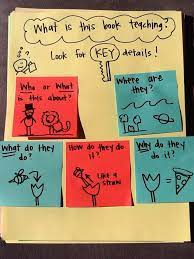 What is this book teaching?
Look for KEY details!
Who or What
is this about?
Where are
they?
What do they
do?
How do they do
it?
Like a
straw
Why do they do
it?